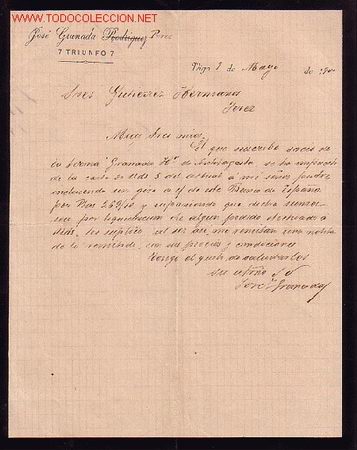 WWW.TODOCOLECCION.NET
José Granada Rodriguez Perez
7 TRIUNFO 7
Vigo 8 de Mayo de
Sres Gutierrez Hermanos
Jerez
Muy Sres mios:
El que suscribe socio de
la forma Granada
de la carta de Uds 5 del actual a mi señor padre
incluyendo un giro a cargo de este Banco de España
por Ptas y suponiendo que dicha suma
sea por liquidacion de algun pedido
Uds, les suplico al ser asi, me remitan una notita
de lo remitido, con sus precios y condiciones
Tengo el gusto de saludarlos
su afmo S. S.
José Granada